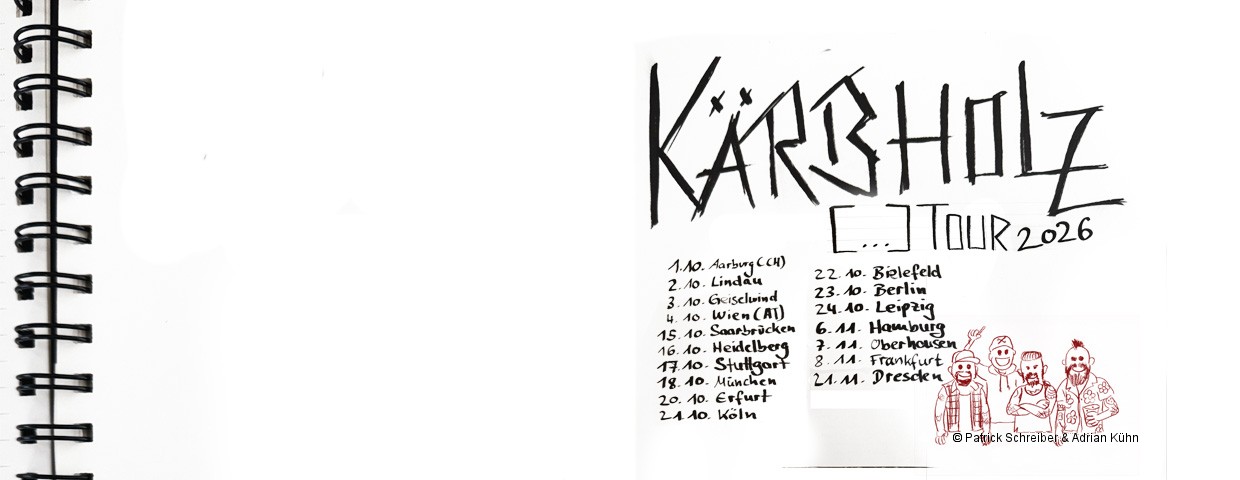 KÄRBHOLZ
[...] TOUR 2026
1.10. Aarburg (CH)
2.10. Lindau
3.10. Geiselwind
4.10. Wien (AT)
15.10. Saarbrücken
16.10. Heidelberg
17.10. Stuttgart
18.10. München
20.10. Erfurt
21.10. Köln
22.10. Bielefeld
23.10. Berlin
24.10. Leipzig
6.11. Hamburg
7.11. Oberhausen
8.11. Frankfurt
21.11. Dresden
© Patrick Schreiber & Adrian Kühn